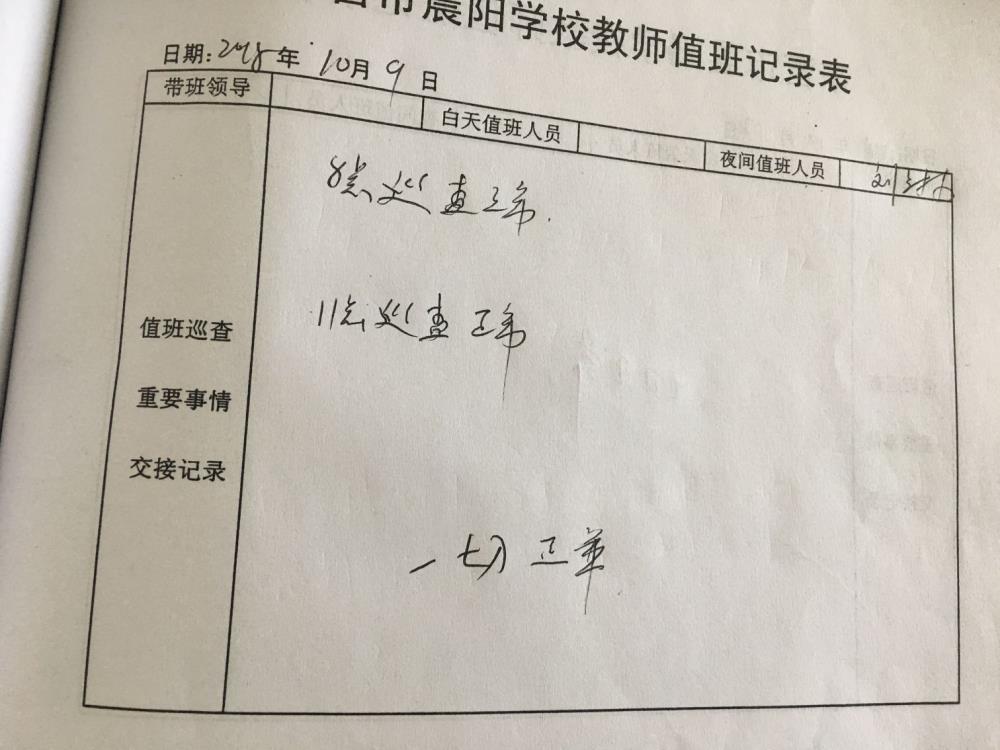 市晨阳学校教师值班记录表
日期:2018年 10月 9日
带班领导 白天值班人员 夜间值班人员 刘
8点巡查正常.
11点巡查正常
值班巡查
重要事情
交接记录
一切正常